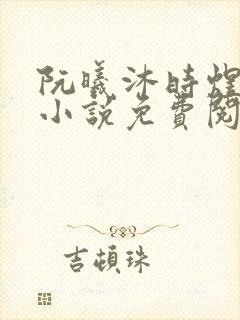 阮曦沐時煌
小說免費閱
吉頓珠